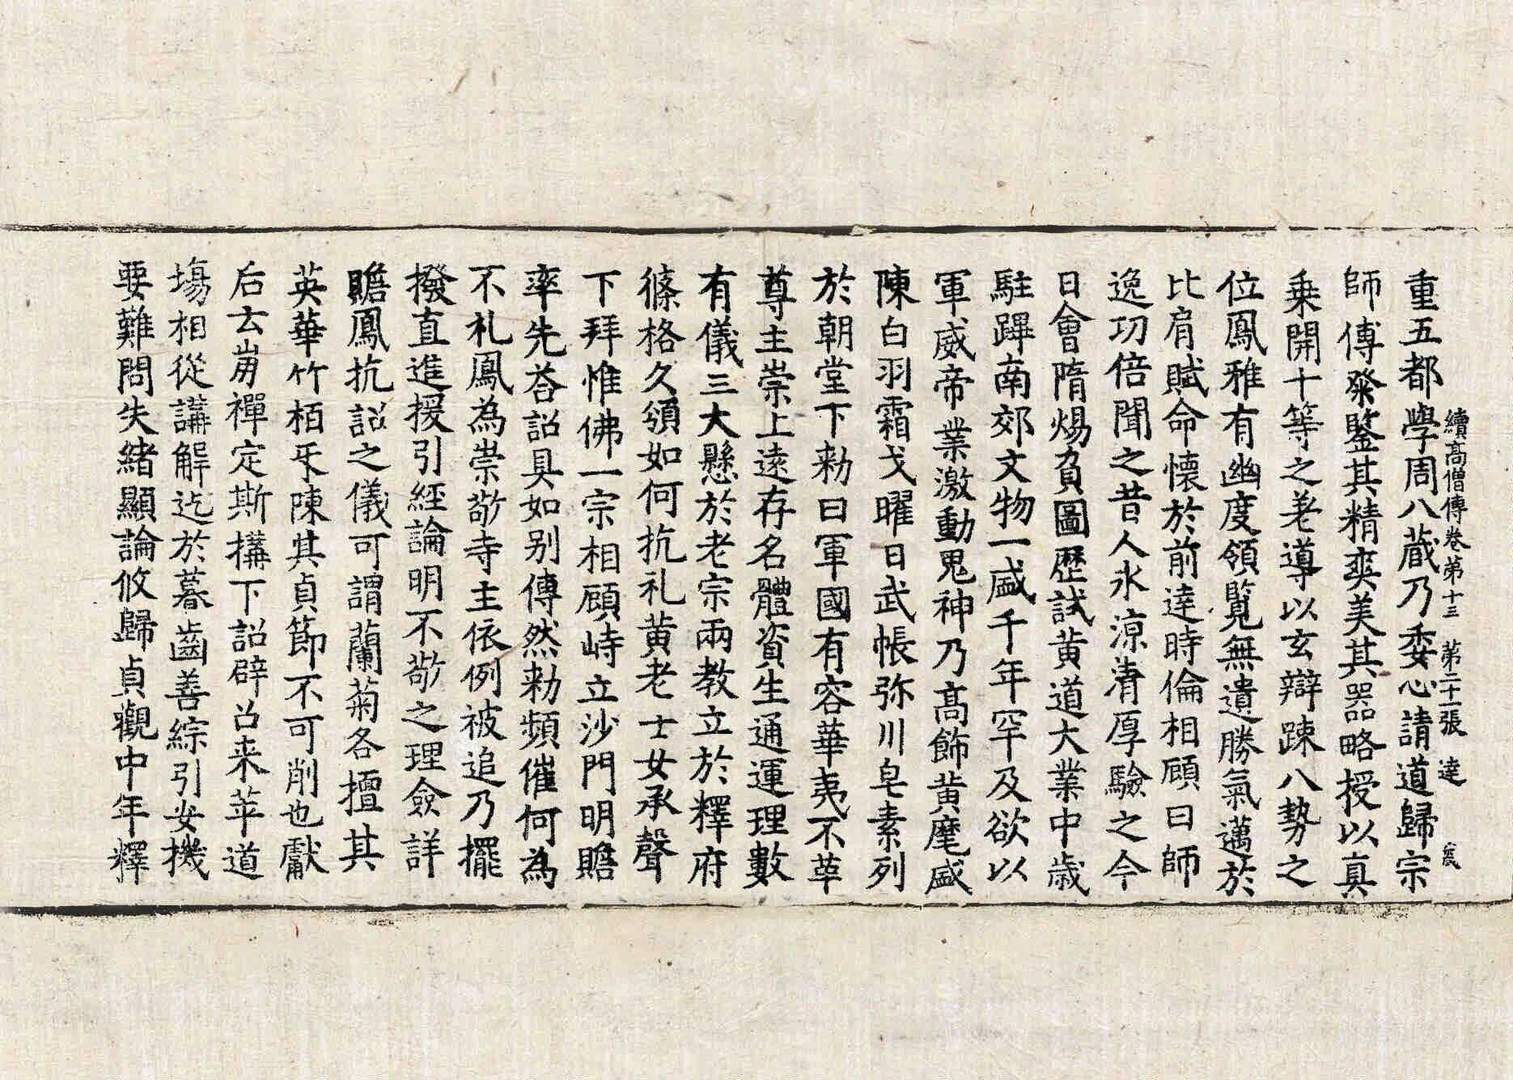 續高僧傳卷第十三 第二十一張 達
重五都學周八藏乃委心請道歸宗
師傅發鑒其精奕美其器略授以真
乗開十等之差導以玄辯踈八勢之
位鳳雅有幽度領覧無遺勝氣邁於
比肩賦命懷於前達時倫相顧曰師
逸功倍聞之昔人氷涼清厚驗之今
日會隋煬負圖歴試黄道大業中歳
駐蹕南郊文物一盛千年罕及欲以
軍威帝業激動鬼神乃髙飾黄麾盛
陳白羽霜戈曜日武帳弥川皂素列
於朝堂下勑曰軍國有容華夷不革
尊主崇上遠存名體資生通運理數
有儀三大懸於老宗兩教立於釋府
絛格久頒如何抗礼黄老士女承聲
下拜惟佛一宗相顧峙立沙門明贍
率先荅詔具如别傳然勑頻催何為
不礼鳳為崇敬寺主依例被追乃擺
撥直進援引經論明不敬之理僉詳
贍鳳抗詔之儀可謂蘭菊各擅其
英華竹栢㸦陳其貞節不可削也獻
后云崩禪定斯搆下詔辟召来莅道
塲相從講解迄於暮齒善綜引安機
要難問失緒顯論攸歸貞觀中年釋